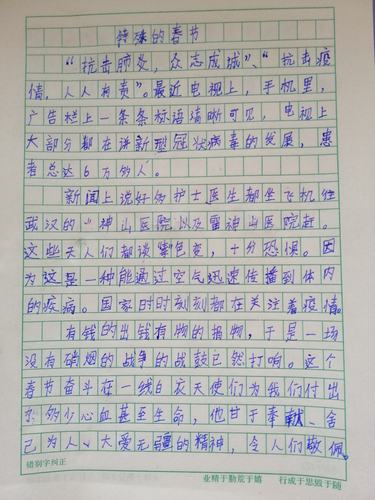 特殊的春节
“抗击肺炎，众志成城”、“抗击疫
情，人人有责”。最近电视上，手机里，
广告栏上一条条标语清晰可见，电视上
大部分都在讲新型冠状病毒的发展，患
者总达6万多人。
新闻上说好多护士医生都坐飞机往
武汉的“神山医院以及雷神山医院赶。
这些天人们都谈 色变，十分恐惧。因
为这是一种能通过空气迅速传播到体内
的疾病。国家时时刻刻都在关注着疫情。
有钱的出钱有物的捐物，于是一场
没有硝烟的战争的战鼓已然打响。这个
春节奋斗在一线白衣天使们为我们付出
多少心血甚至生命，他甘于奉献、舍
己为人、大爱无疆的精神，令人们敬佩。
错别字纠正
业精于勤荒于嬉 行成于思毁于随